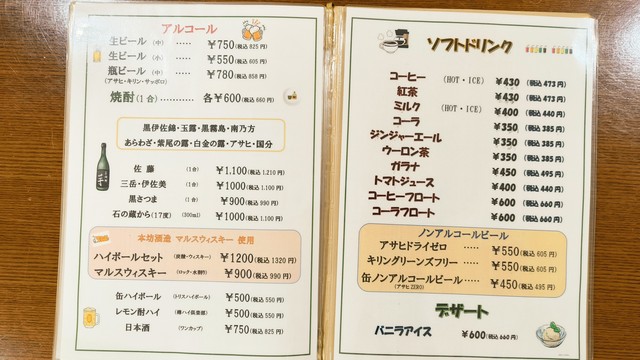 アルコール
生ビール (中) ····· ￥750(税込 825 円)
生ビール (小) ····· ￥550(税込 605 円)
瓶ビール (中) ····· ￥780(税込 858 円)
(アサヒ・キリン・サッポロ)
焼酎(1合) ·········· 各￥600(税込 660 円)
黒伊佐錦・玉露・黒霧島・南乃方
あらわざ・紫尾の露・白金の露・アサヒ・国分
佐藤 (1合) ￥1,100(税込 1,210 円)
三岳・伊佐美 (1合) ￥1000(税込 1,100 円)
黒さつま (1合) ￥900(税込 990 円)
石の蔵から(17度) (300ml) ￥1000(税込 1,100 円)
本坊酒造 マルスウィスキー 使用
ハイボールセット (炭酸・ウィスキー) ￥1200(税込 1320 円)
マルスウィスキー (ロック・水割り) ￥900(税込 990 円)
缶ハイボール (トリスハイボール) ￥500(税込 550 円)
レモン酎ハイ (樽ハイ倶楽部) ￥500(税込 550 円)
日本酒 (ワンカップ) ￥750(税込 825 円)
ソフトドリンク
コーヒー (HOT・ICE) ￥430 (税込 473 円)
紅茶 ￥430 (税込 473 円)
ミルク (HOT・ICE) ￥400 (税込 440 円)
コーラ ￥350 (税込 385 円)
ジンジャーエール ￥350 (税込 385 円)
ウーロン茶 ￥350 (税込 385 円)
ガラナ ￥450 (税込 495 円)
トマトジュース ￥400 (税込 440 円)
コーヒーフロート ￥600 (税込 660 円)
コーラフロート ￥600 (税込 660 円)
ノンアルコールビール
アサヒドライゼロ ····· ￥550(税込 605 円)
キリングリーンズフリー ····· ￥550(税込 605 円)
缶ノンアルコールビール ····· ￥450(税込 495 円)
(アサヒ ZERO)
デザート
バニラアイス ￥600(税込 660 円)